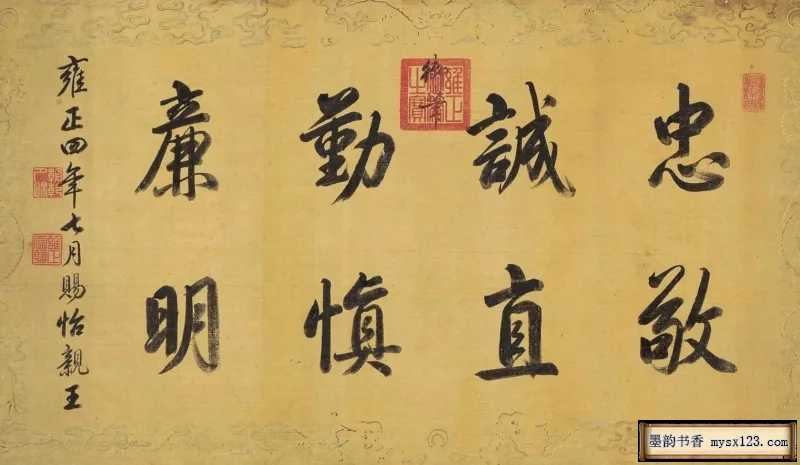 忠敬
誠直
勤慎
廉明
御筆
雍正四年七月賜怡親王
雍正
之寶
墨韵书香 mysx123.com